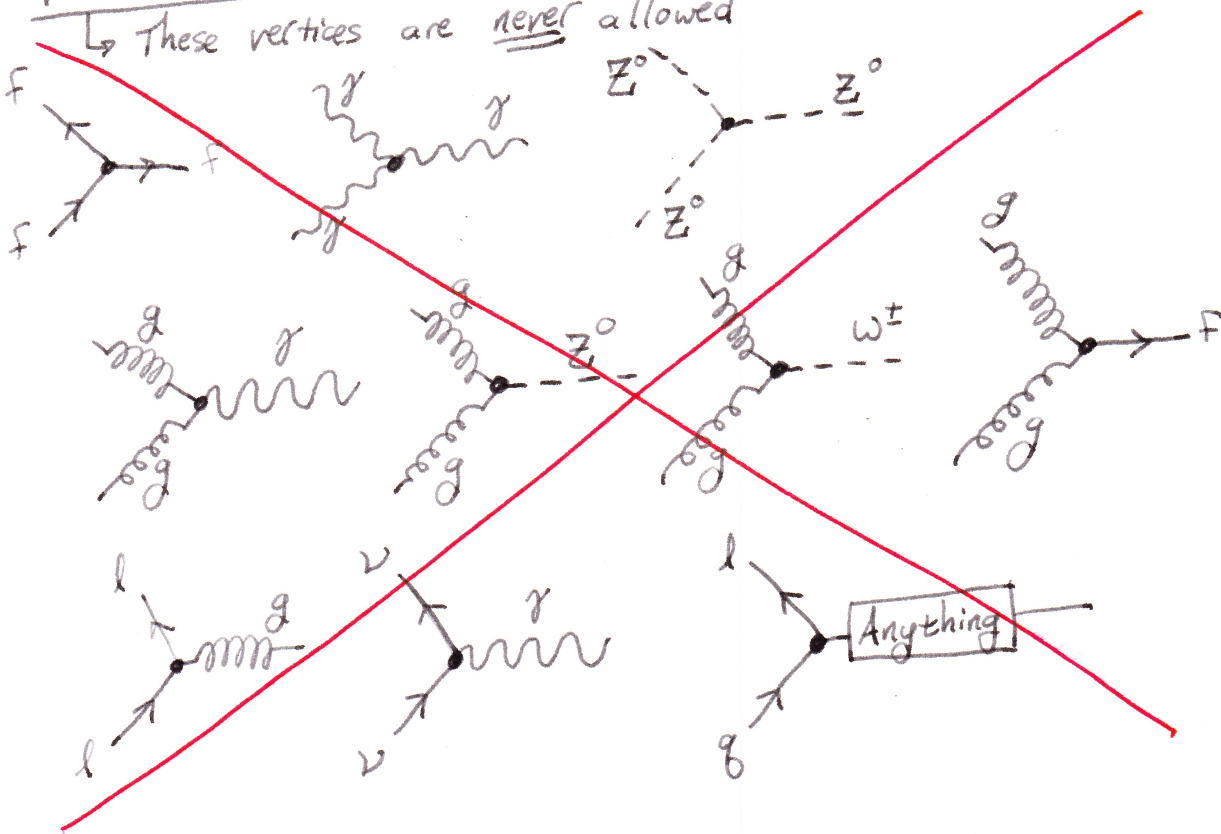 ↳ These vertices are never allowed
f f f
γ γ γ
Z⁰ Z⁰ Z⁰
g g γ
g g Z⁰
g g W±
g g f
l l g
ν ν γ
l q Anything